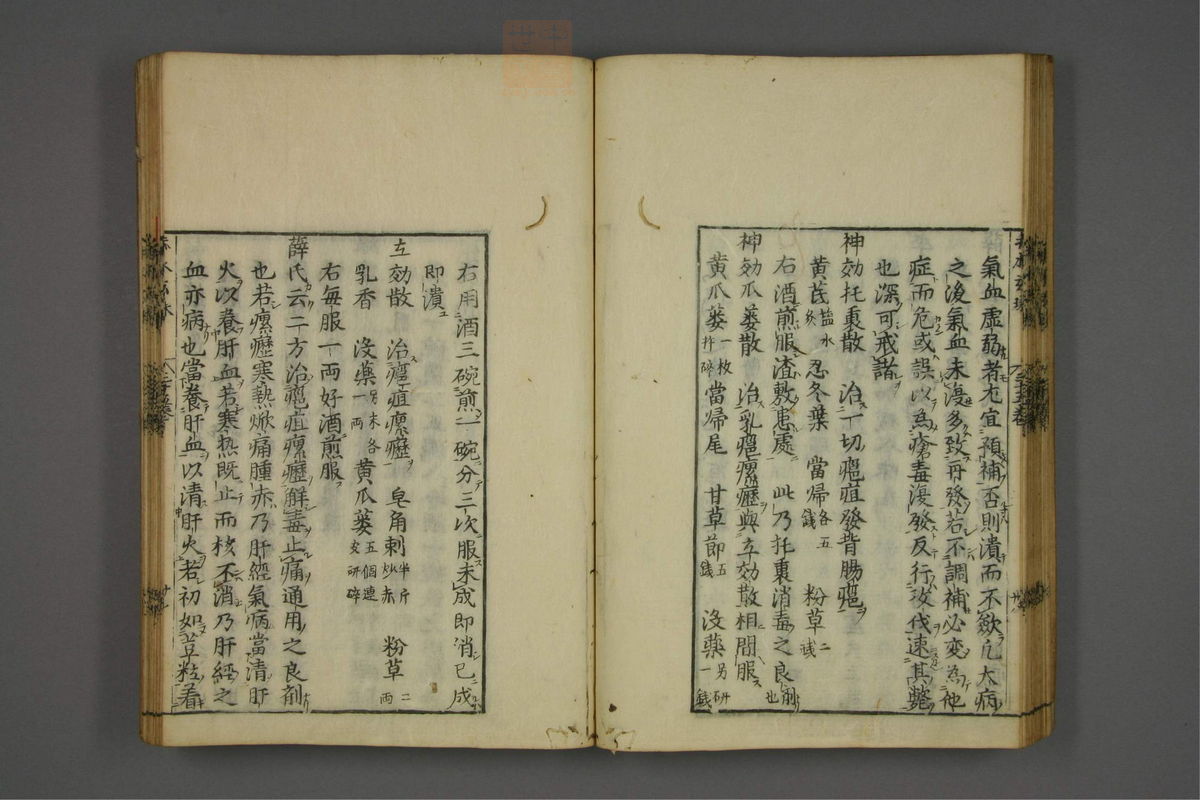 氣血虛弱者尤宜預補否則潰而不歛凡大病
之後氣血未復多致再發若不調補必變為他
症而危或誤以為瘡毒復發反行攻伐速其斃
也深可戒諸
神効托裏散 治一切癰疽發背腸癰
黃芪塩水炙 忍冬葉 當歸各五錢 粉草二錢
右酒煎服渣敷患處 此乃托裏消毒之良劑也
神効瓜蔞散 治乳癰瘰癧與立効散相間服
黃瓜蔞一枚杵碎 當歸尾 甘草節五錢 没藥另研一錢
右用酒三碗煎一碗分三次服未成即消已成
即潰
立効散 治癰疽瘰癧 皂角刺半斤炒赤 粉草二兩
乳香 没藥另末各一兩 黃瓜蔞五個連皮研碎
右每服一兩好酒煎服
薛氏云二方治癰疽瘰癧解毒止痛通用之良劑
也若瘰癧寒熱焮痛腫赤乃肝經氣病當清肝
火以養肝血若寒热既止而核不消乃肝經之
血亦病也當養肝血以清肝火若初如荳粒着